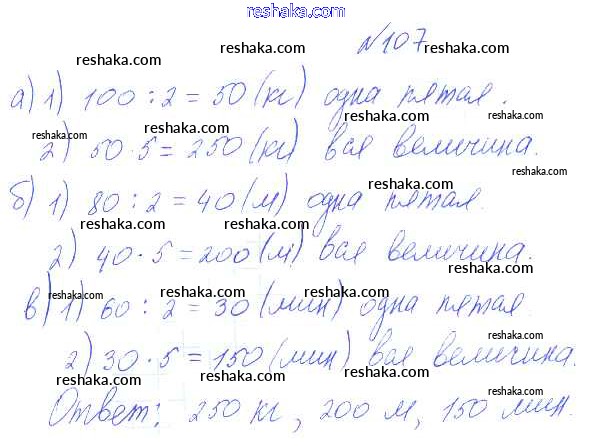 reshaka.com
№107
reshaka.com reshaka.com
reshaka.com
а) 1) 100 : 2 = 50 (кг) одна пятая.
reshaka.com reshaka.com reshaka.com
2) 50 · 5 = 250 (кг) вся величина.
reshaka.com reshaka.com
б) 1) 80 : 2 = 40 (м) одна пятая.
reshaka.com reshaka.com reshaka.com
2) 40 · 5 = 200 (м) вся величина.
reshaka.com reshaka.com reshaka.com reshaka.com
в) 1) 60 : 2 = 30 (мин) одна пятая
reshaka.com reshaka.com reshaka.com
2) 30 · 5 = 150 (мин) вся величина.
reshaka.com reshaka.com reshaka.com
Ответ: 250 кг, 200 м, 150 мин.
reshaka.com reshaka.com reshaka.com